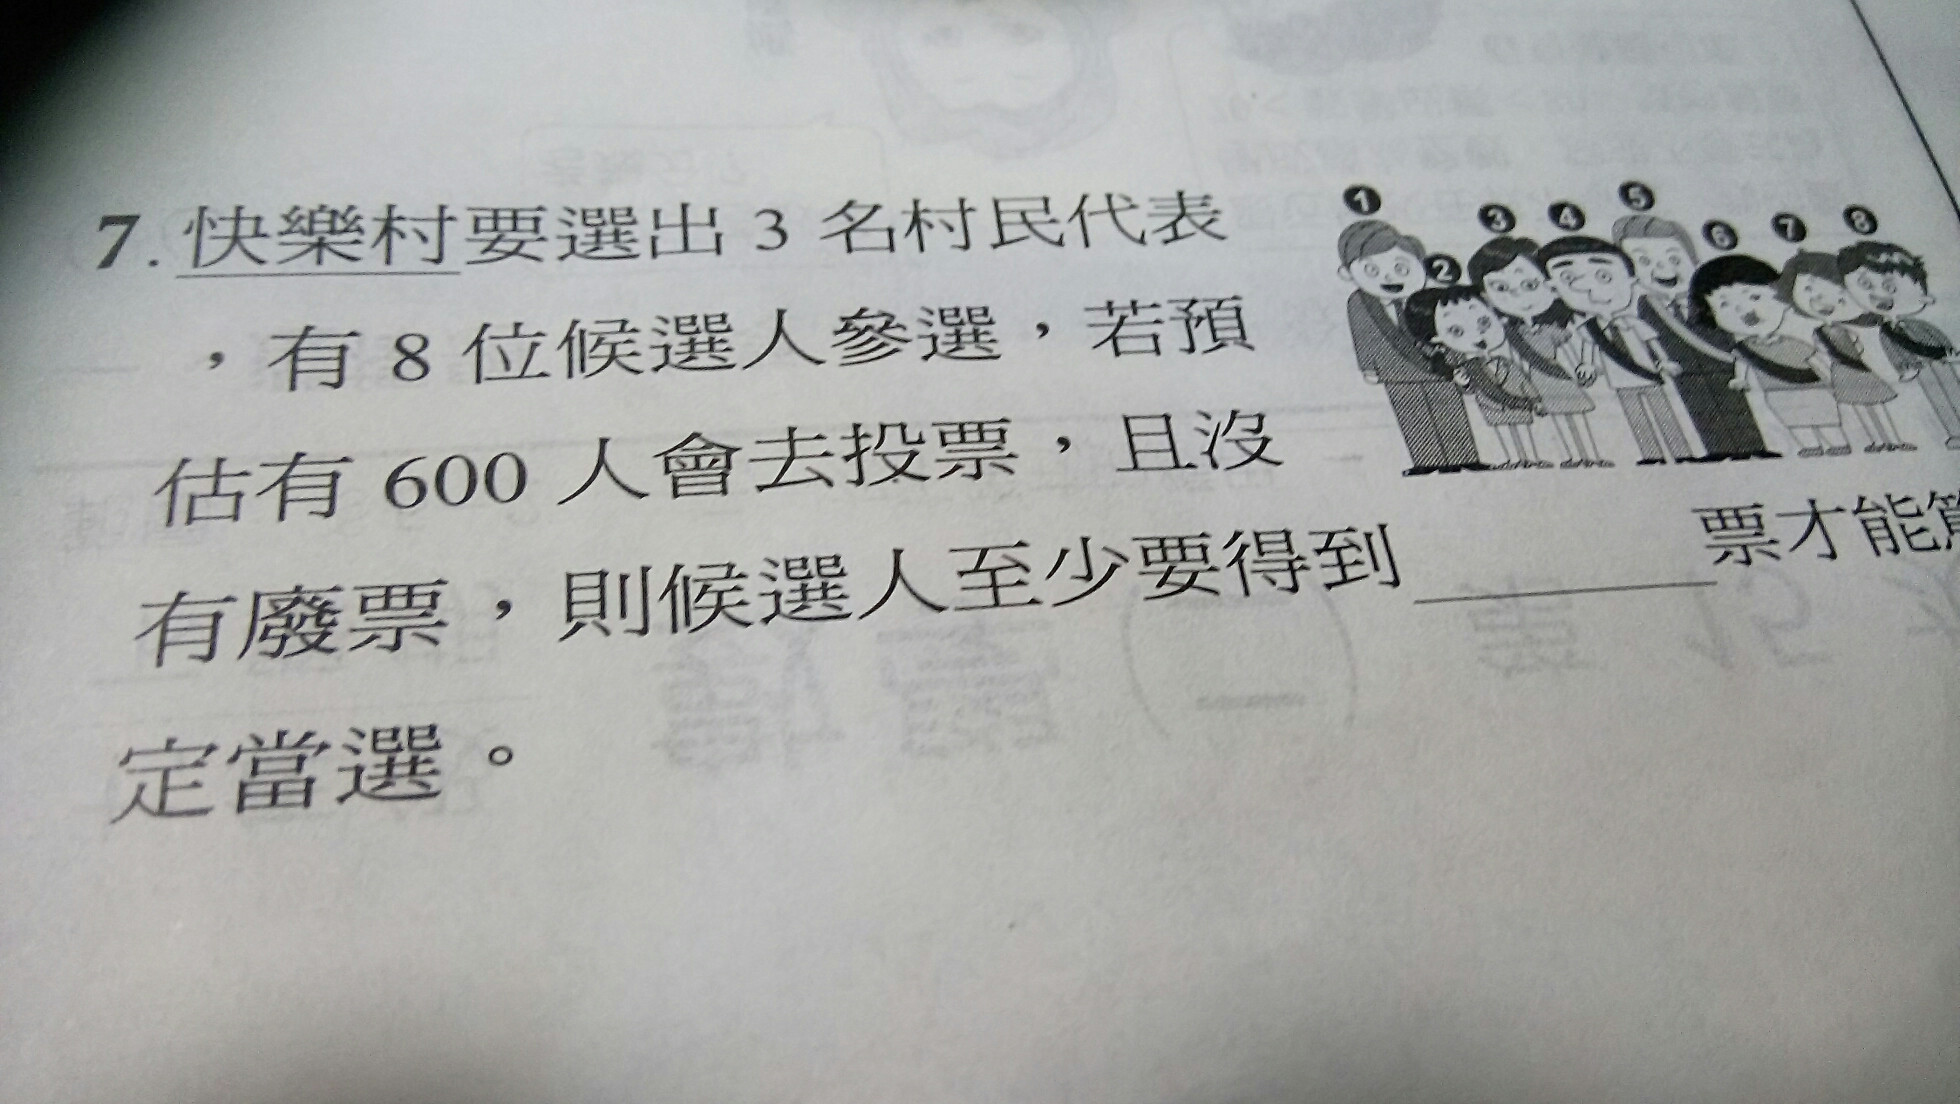 7. 快樂村要選出 3 名村民代表
，有 8 位候選人參選，若預
估有 600 人會去投票，且沒
有廢票，則候選人至少要得到______票才能
定當選。
1 2 3 4 5 6 7 8